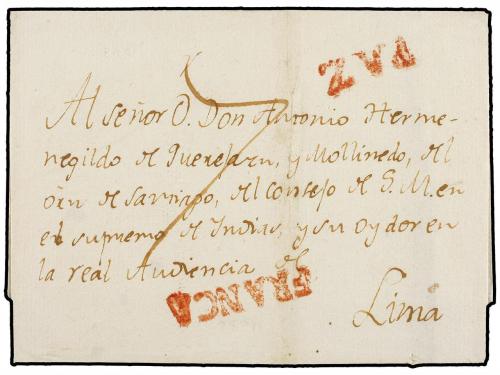 PAZ
Al señor D. Don Antonio Herme-
negildo de Querejazu, y Mollinedo, del
orn de Santiago, del Consejo de S. M. en
el supremo de Indias, y su Oydor en
la real Audiencia de
FRANCA
Lima